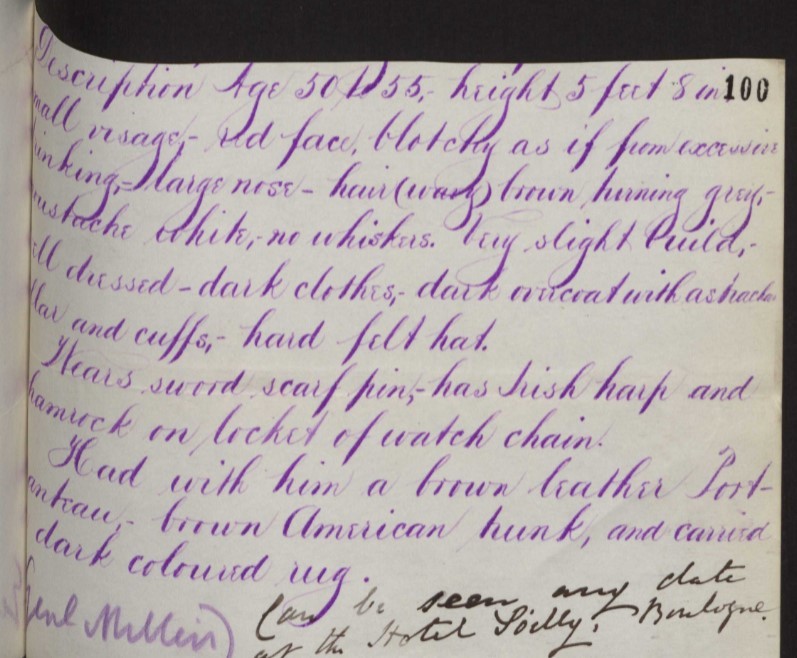 Description Age 50 to 55,- height 5 feet 8 in 100
mall visage,- red face, blotchy as if from excessive
inking,- large nose - hair (wavy) brown turning grey,-
oustache white,- no whiskers. Very slight build,-
ell dressed - dark clothes,- dark overcoat with astrachan
llar and cuffs,- hard felt hat.
Wears sword scarf pin,- has Irish harp and
hamrock on locket of watch chain.
Had with him a brown leather Port-
anteau,- brown American trunk, and carried
dark coloured rug.
Genl Millen) Can be seen any date
at the Hotel Boulogne.